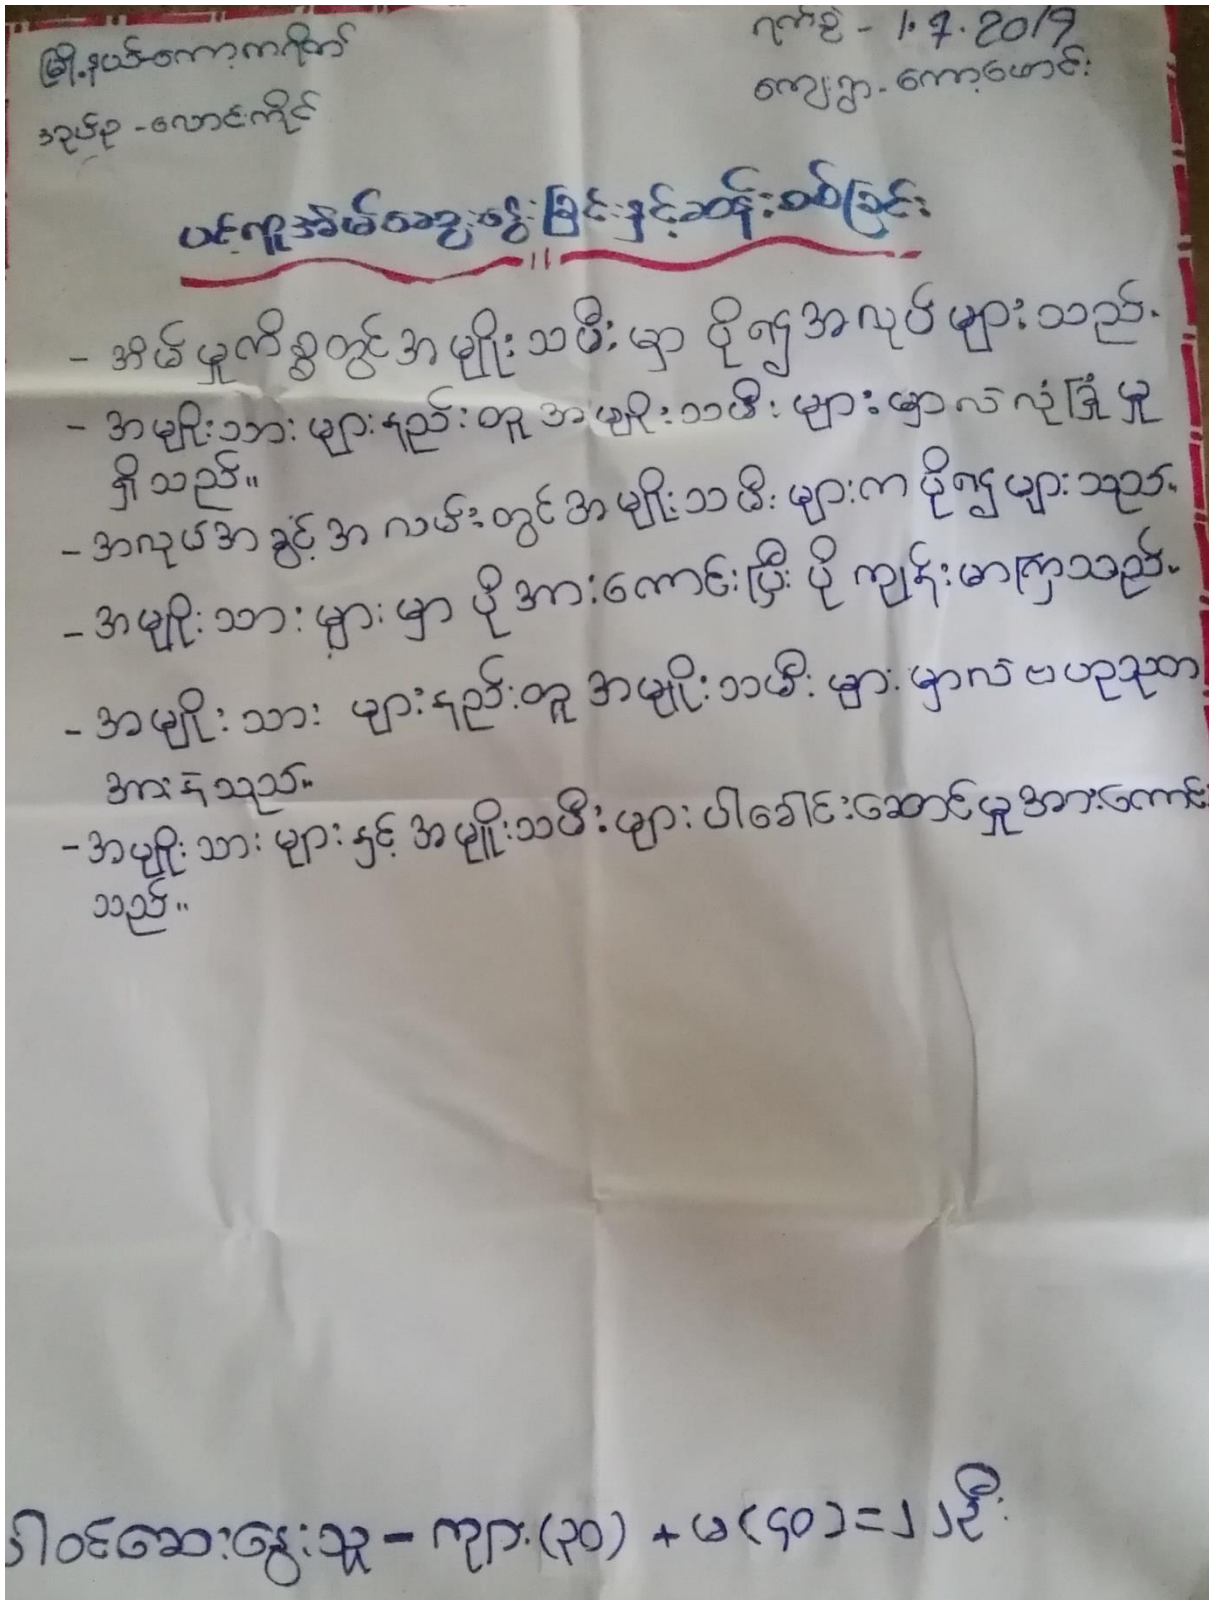 မြို့နယ်-ကော့ကရိတ်
ရက်စွဲ - 1.7.2019
အုပ်စု - လောင်းကိုင်
ကျေးရွာ - ကော့ဖောင်း
ပင့်ကူအိမ်ဆွေးနွေးခြင်းနှင့်ဆန်းစစ်ခြင်း
- အိမ်မှုကိစ္စတွင်အမျိုးသမီးမှာ ပို၍အလုပ်များသည်။
- အမျိုးသားများနည်းတူအမျိုးသမီးများမှာလဲလုံခြုံမှု
ရှိသည်။
- အလုပ်အခွင့်အလမ်းတွင်အမျိုးသမီးများကပို၍များသည်။
- အမျိုးသားများမှာ ပိုအားကောင်းပြီး ပိုကျန်းမာကြသည်။
- အမျိုးသား များနည်းတူအမျိုးသမီးများမှာလဲဗဟုသုတ
အားနဲသည်။
- အမျိုးသားများနှင့်အမျိုးသမီးများပါခေါင်းဆောင်မှုအားကောင်း
သည်။
ပါဝင်ဆွေးနွေးသူ - ကျား(၃၀) + မ(၄၀)=၂၂ဦး